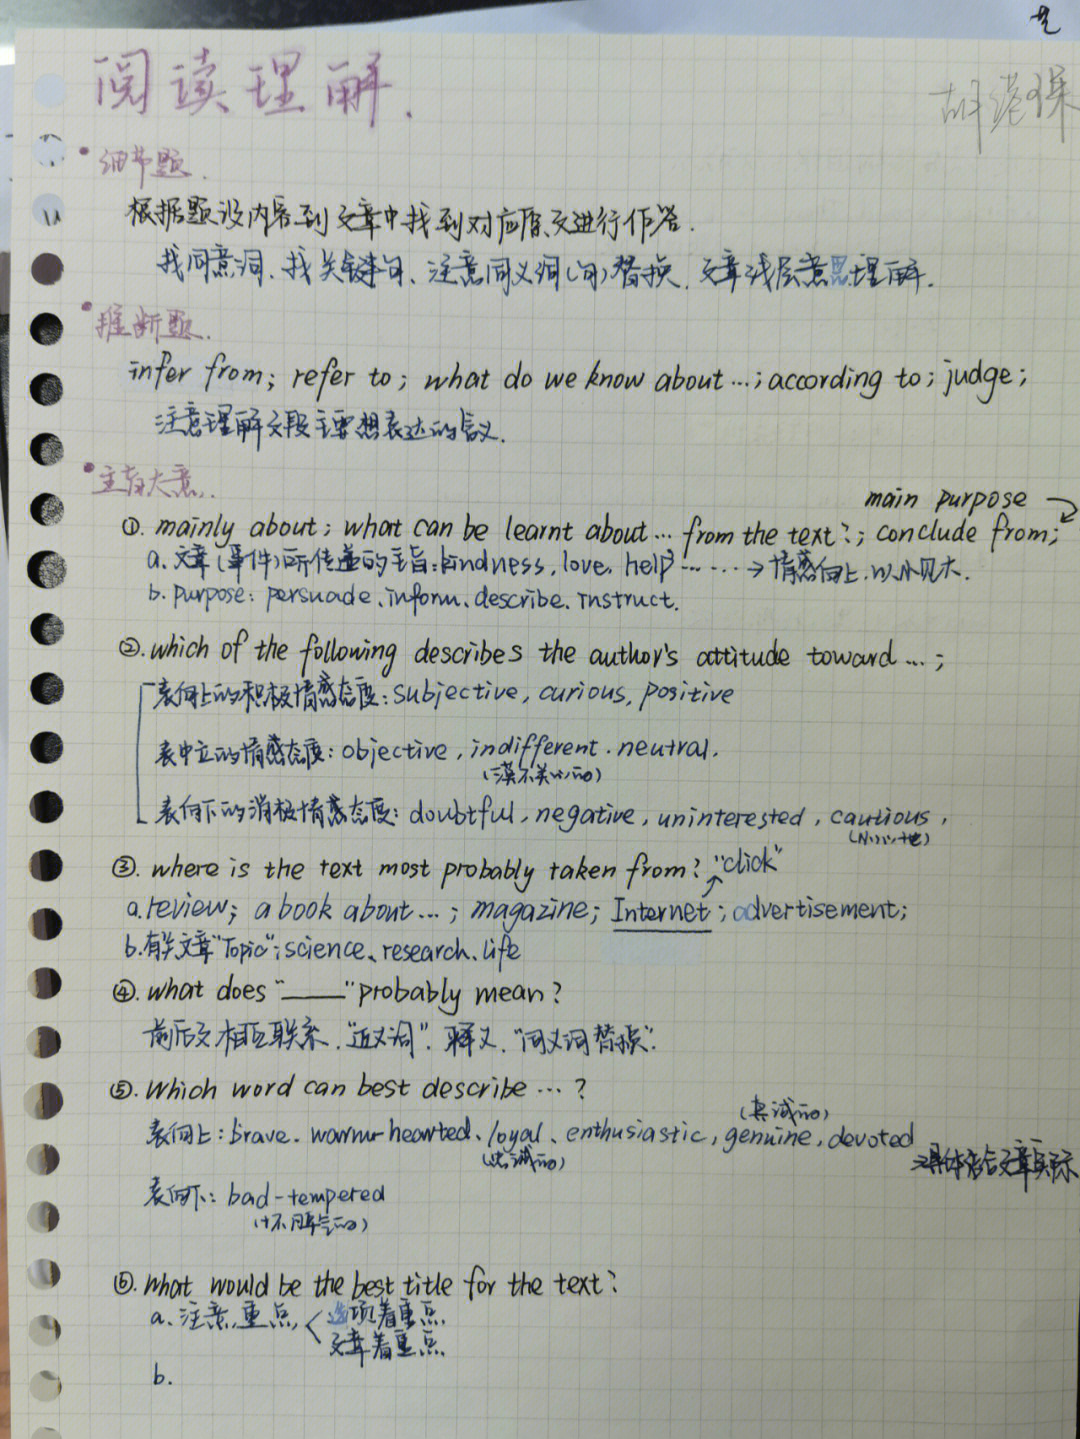 阅读理解.
·细节题.
根据题设内容到文章中找到对应原文进行作答.
找同意词、找关键句、注意同义词(句)替换、文章浅层意思理解.
·推断题.
infer from; refer to; what do we know about...; according to; judge;
注意理解文段主要想表达的含义.
·主旨大意.
main purpose
①. mainly about; what can be learnt about... from the text?; conclude from;
a. 文章(事件)所传递的主旨: kindness, love, help ······→ 情感向上、以小见大.
b. purpose: persuade、inform、describe、instruct.
②. which of the following describes the author's attitude toward ...;
表向上的积极情感态度: subjective, curious, positive
表中立的情感态度: objective, indifferent. neutral.
(漠不关心的)
表向下的消极情感态度: doubtful, negative, uninterested, cautious,
(小心地)
③. where is the text most probably taken from? "click"
a. review; a book about...; magazine; Internet; advertisement;
b. 有关文章"Topic"; science、research、life
④. what does "____" probably mean?
前后文相互联系、"近义词"、释义、"同义词替换".
⑤. Which word can best describe ... ?
(真诚的)
表向上: brave、warm-hearted、loyal、enthusiastic, genuine, devoted
(忠诚的)
具体结合文章实际
表向下: bad-tempered
(坏脾气的)
⑥. What would be the best title for the text?
a. 注意重点, 选项着重点
文章着重点
b.